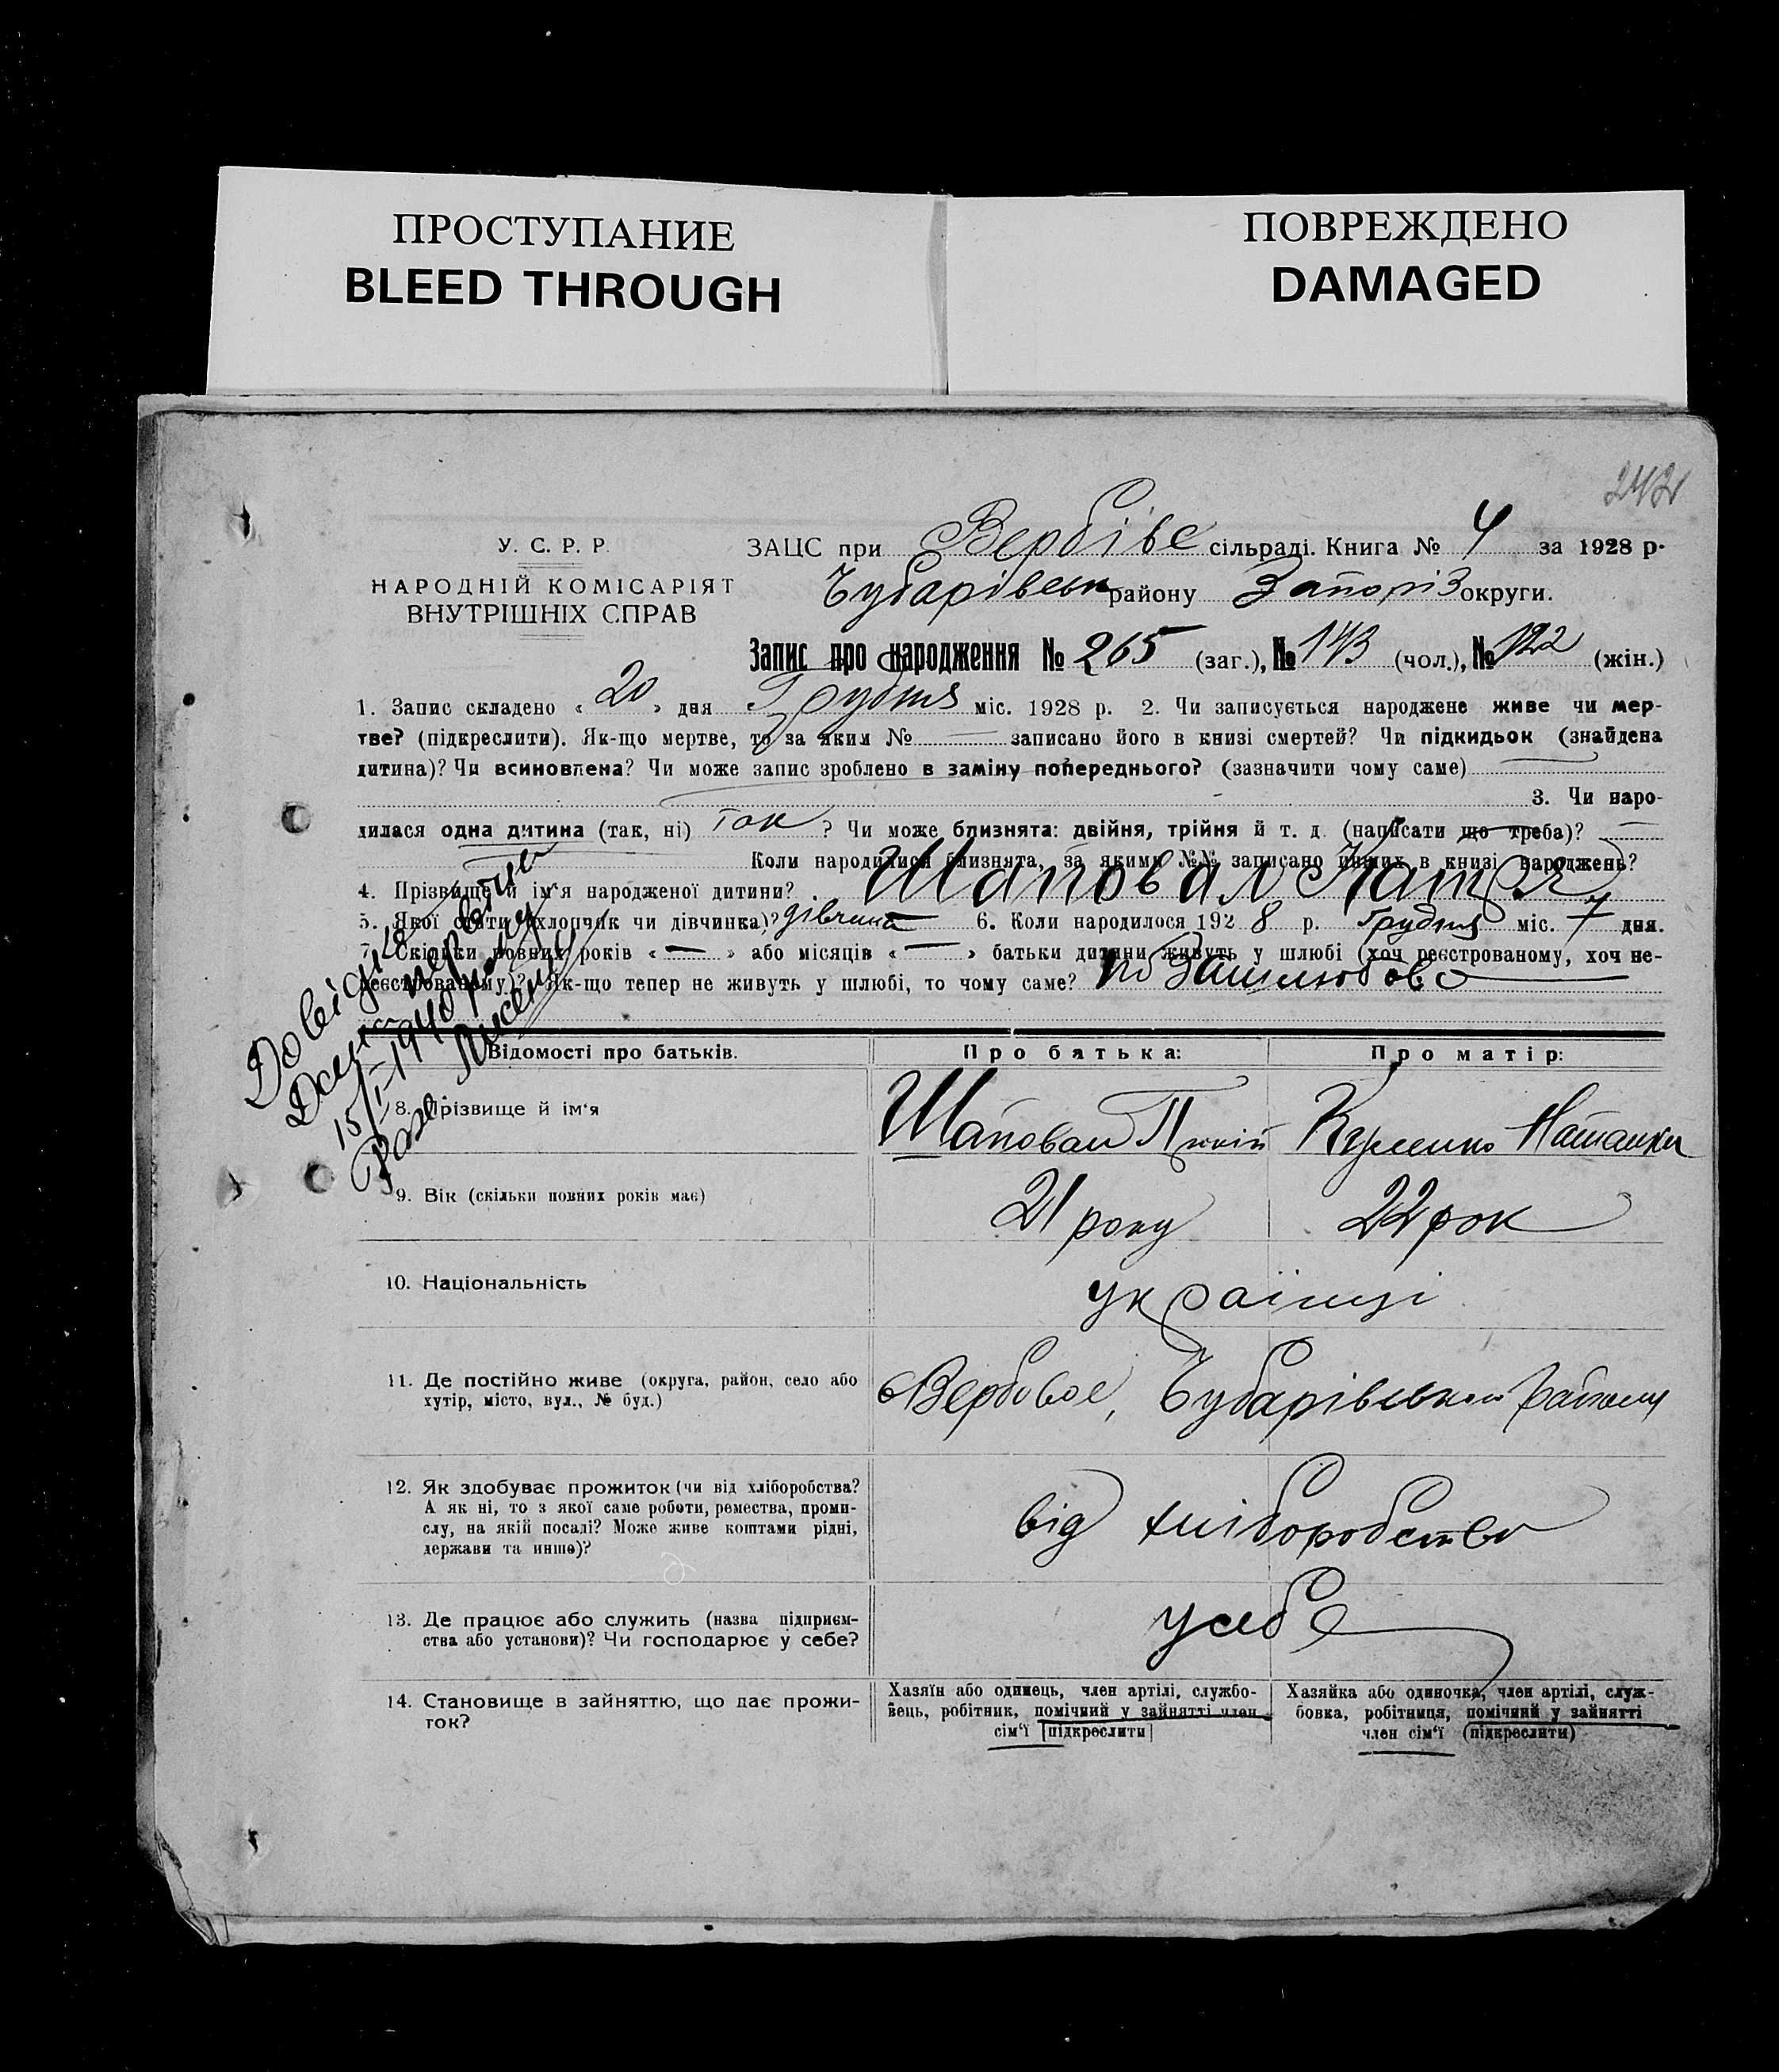 ПРОСТУПАНИЕ
BLEED THROUGH
ПОВРЕЖДЕНО
DAMAGED
242
У. С. Р. Р.
НАРОДНІЙ КОМІСАРІЯТ
ВНУТРІШНІХ СПРАВ
ЗАЦС при Вербівс сільраді. Книга № 4 за 1928 р.
Чубарівськ району Запоріз округи.
Запис про народження № 265 (заг.), № 143 (чол.), № 122 (жін.)
1. Запис складено « 20 » дня Грудня міс. 1928 р. 2. Чи записується народжене живе чи мер-
тве? (підкреслити). Як-що мертве, то за яким № — записано його в книзі смертей? Чи підкидьок (знайдена
дитина)? Чи всиновлена? Чи може запис зроблено в заміну попереднього? (зазначити чому саме)
3. Чи наро-
дилася одна дитина (так, ні) так ? Чи може близнята: двійня, трійня й т. д. (написати що треба)? —
Коли народилися близнята, за якими №№ записано инших в книзі народжень?
4. Прізвище й ім'я народженої дитини? Шаповал Катря
5. Якої статі (хлопчик чи дівчинка)? дівчина 6. Коли народилося 1928 р. Грудня міс. 7 дня.
7. Скільки повних років « — » або місяців « — » батьки дитини живуть у шлюбі (хоч реєстрованому, хоч не-
реєстрованому)? Як-що тепер не живуть у шлюбі, то чому саме?
Відомості про батьків.
Про батька:
Про матір:
8. Прізвище й ім'я
Шаповал
Наталка
9. Вік (скільки повних років має)
21 року
22 рок
10. Національність
українці
11. Де постійно живе (округа, район, село або
хутір, місто, вул., № буд.)
с Вербовое, Чубарівського району
12. Як здобуває прожиток (чи від хліборобства?
А як ні, то з якої саме роботи, ремества, проми-
слу, на якій посаді? Може живе коштами рідні,
держави та инше)?
від хліборобства
13. Де працює або служить (назва підприєм-
ства або установи)? Чи господарює у себе?
усебе
14. Становище в зайняттю, що дає прожи-
ток?
Хазяїн або одинець, член артілі, службо-
вець, робітник, помічний у зайнятті член
сім'ї (підкреслити)
Хазяйка або одиночка, член артілі, служ-
бовка, робітниця, помічний у зайнятті
член сім'ї (підкреслити)
15/I-1940 року